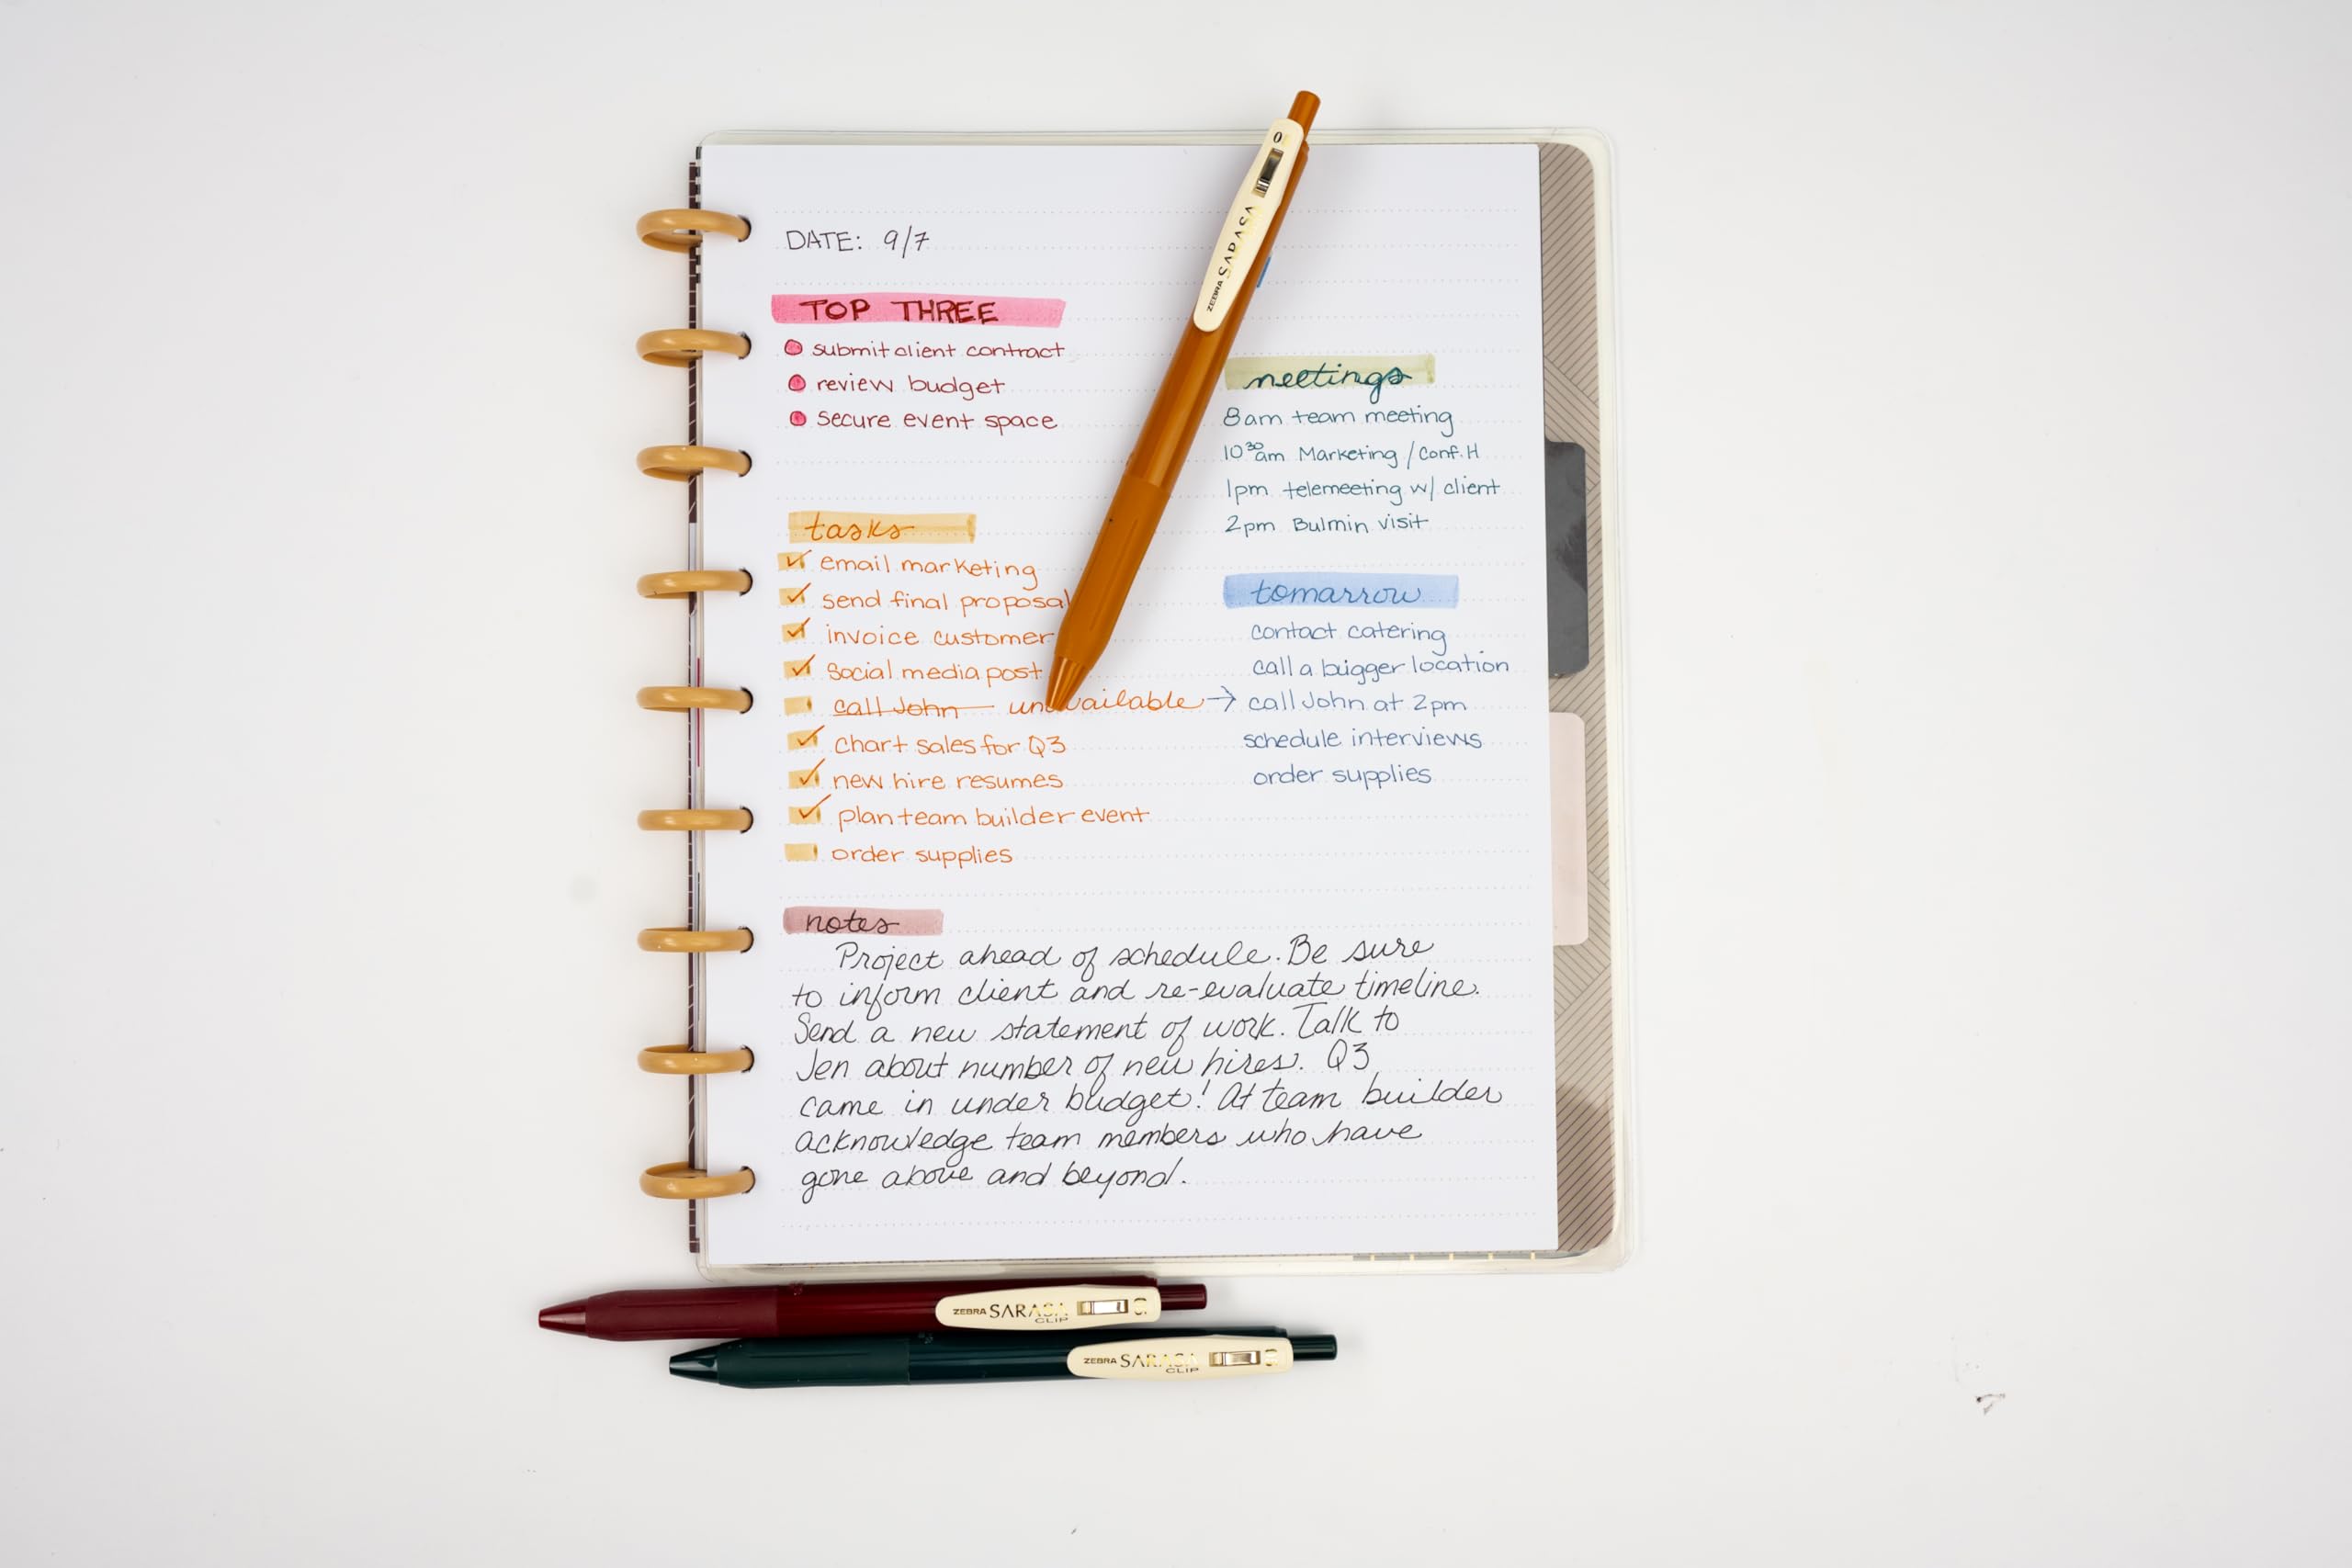 DATE: 9/7
TOP THREE
submit client contract
review budget
secure event space
tasks
email marketing
send final proposal
invoice customer
social media post
call John unavailable →
chart sales for Q3
new hire resumes
plan team builder event
order supplies
meetings
8am team meeting
10³⁰am Marketing / Conf. H
1pm telemeeting w/ client
2pm Bulmin visit
tomorrow
contact catering
call a bigger location
call John at 2pm
schedule interviews
order supplies
notes
Project ahead of schedule. Be sure
to inform client and re-evaluate timeline.
Send a new statement of work. Talk to
Jen about number of new hires. Q3
came in under budget! At team builder
acknowledge team members who have
gone above and beyond.
ZEBRA SARASA
ZEBRA SARASA CLIP
ZEBRA SARASA CLIP